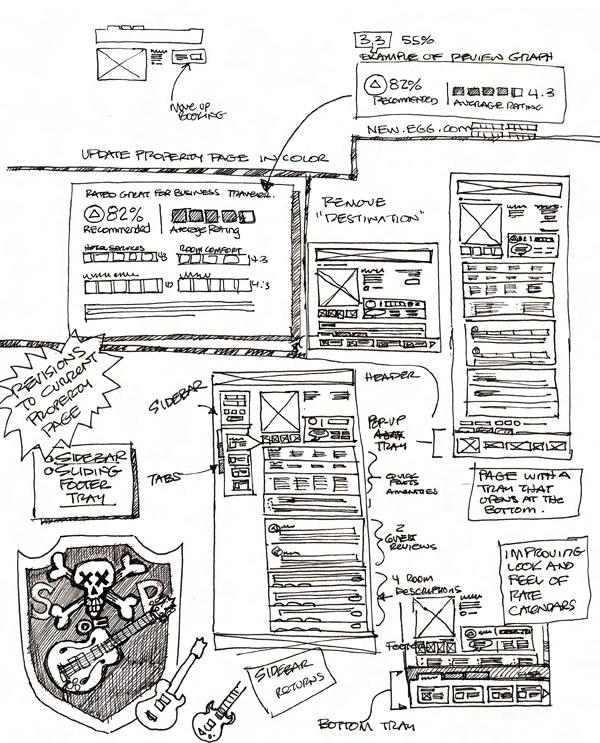 MOVE UP
BOOKING
3.3 55%
EXAMPLE OF REVIEW GRAPH
82%
RECOMMENDED
4.3
AVERAGE RATING
NEW.EGG.COM
UPDATE PROPERTY PAGE IN COLOR
RATED GREAT FOR BUSINESS TRAVELER.
82%
Recommended
Average Rating
HOTEL SERVICES
ROOM COMFORT
4.3
4.3
REMOVE
"DESTINATION"
REVISIONS
TO CURRENT
PROPERTY
PAGE
SIDEBAR
SLIDING
FOOTER
TRAY
SIDEBAR
TABS
HEADER
POP-UP
TRAY
QUICK
FACTS
AMENITIES
2
GUEST
REVIEWS
4 ROOM
DESCRIPTIONS
FOOTER
PAGE WITH A
TRAY THAT
OPENS AT THE
BOTTOM.
IMPROVING
LOOK AND
FEEL OF
RATE
CALENDARS
S D
SIDEBAR
RETURNS
BOTTOM TRAY